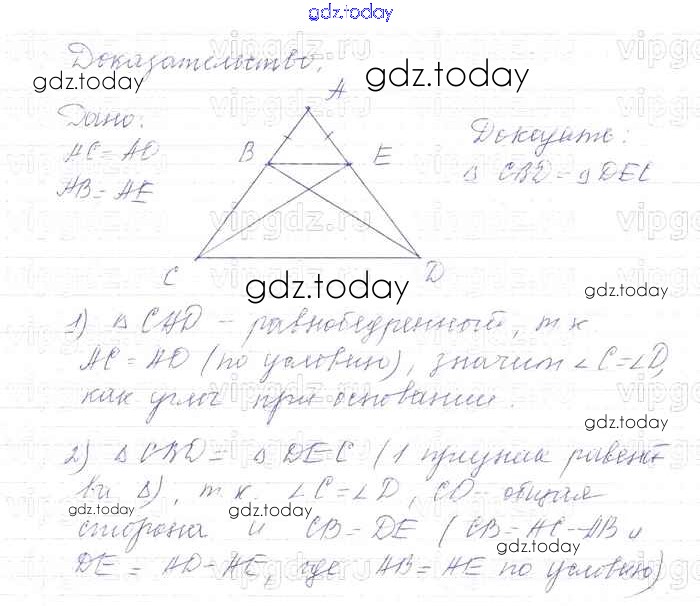 gdz.today
Доказательство.
gdz.today
gdz.today
Дано:
A
Докажите:
AC = AD
B
E
△ CBD = △ DEC
AB = AE
C
D
gdz.today
gdz.today
1) △ CAD – равнобедренный, т.к.
AC = AD (по условию), значит ∠C = ∠D,
как углы при основании.
gdz.today
2) △ CBD = △ DEC (1 признак равенст-
ва △), т.к. ∠C = ∠D, CD – общая
gdz.today
gdz.today
сторона и CB = DE (CB = AC – AB и
gdz.today
DE = AD – AE, где AB = AE по условию)